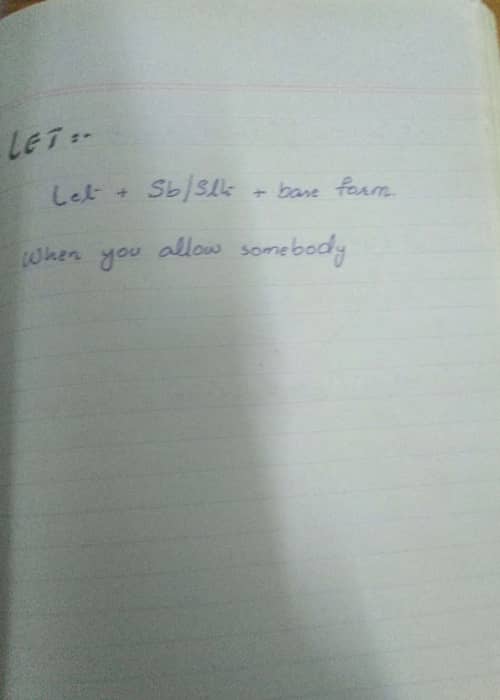 LET :-
Let + Sb/Sth + base form
When you allow somebody